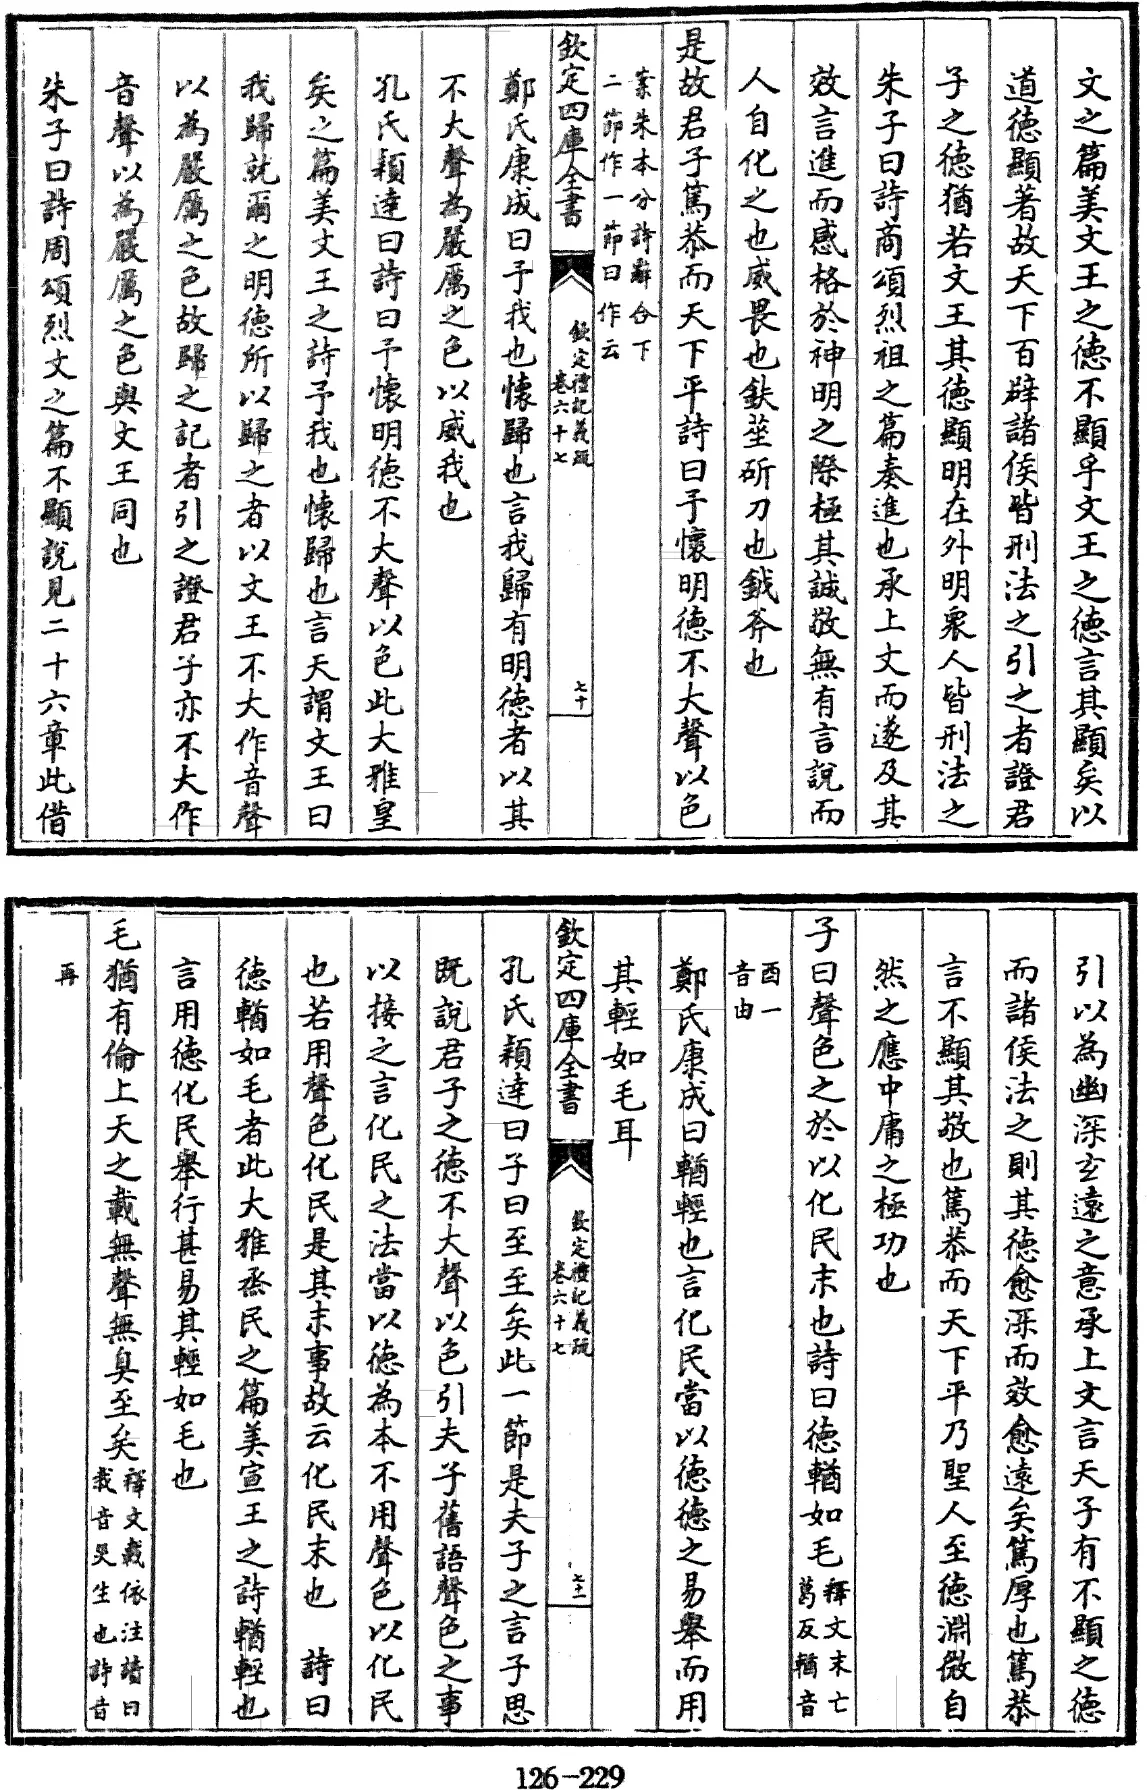 文之篇美文王之徳不顯乎文王之徳言其顯矣以
道徳顯著故天下百辟諸侯皆刑法之引之者證君
子之徳猶若文王其徳顯明在外明衆人皆刑法之
朱子曰詩商頌烈祖之篇奏進也承上文而遂及其
效言進而感格於神明之際極其誠敬無有言說而
人自化之也威畏也鈇莝斫刀也鉞斧也
是故君子篤恭而天下平詩曰予懷明徳不大聲以色
案朱本分詩辭合下
二節作一節曰作云
欽定四庫全書
欽定禮記義疏
卷六十七
七十
鄭氏康成曰予我也懐歸也言我歸有明徳者以其
不大聲為嚴厲之色以威我也
孔氏穎達曰詩曰予懐明徳不大聲以色此大雅皇
矣之篇美文王之詩予我也懐歸也言天謂文王曰
我歸就爾之明徳所以歸之者以文王不大作音聲
以為嚴厲之色故歸之記者引之證君子亦不大作
音聲以為嚴厲之色與文王同也
朱子曰詩周頌烈文之篇不顯說見二十六章此借
引以為幽深玄遠之意承上文言天子有不顯之徳
而諸侯法之則其徳愈深而效愈遠矣篤厚也篤恭
言不顯其敬也篤恭而天下平乃聖人至徳淵微自
然之應中庸之極功也
子曰聲色之於以化民末也詩曰徳輶如毛
釋文末亡
葛反輶音
酉一
音由
鄭氏康成曰輶輕也言化民當以徳徳之易舉而用
其輕如毛耳
欽定四庫全書
欽定禮記義疏
卷六十七
七十一
孔氏穎達曰子曰至至矣此一節是夫子之言子思
既說君子之徳不大聲以色引夫子舊語聲色之事
以接之言化民之法當以徳為本不用聲色以化民
也若用聲色化民是其末事故云化民末也　詩曰
徳輶如毛者此大雅烝民之篇美宣王之詩輶輕也
言用徳化民舉行甚易其輕如毛也
毛猶有倫上天之載無聲無臭至矣
釋文載依注讀曰
栽音哉生也詩音
再
126-229